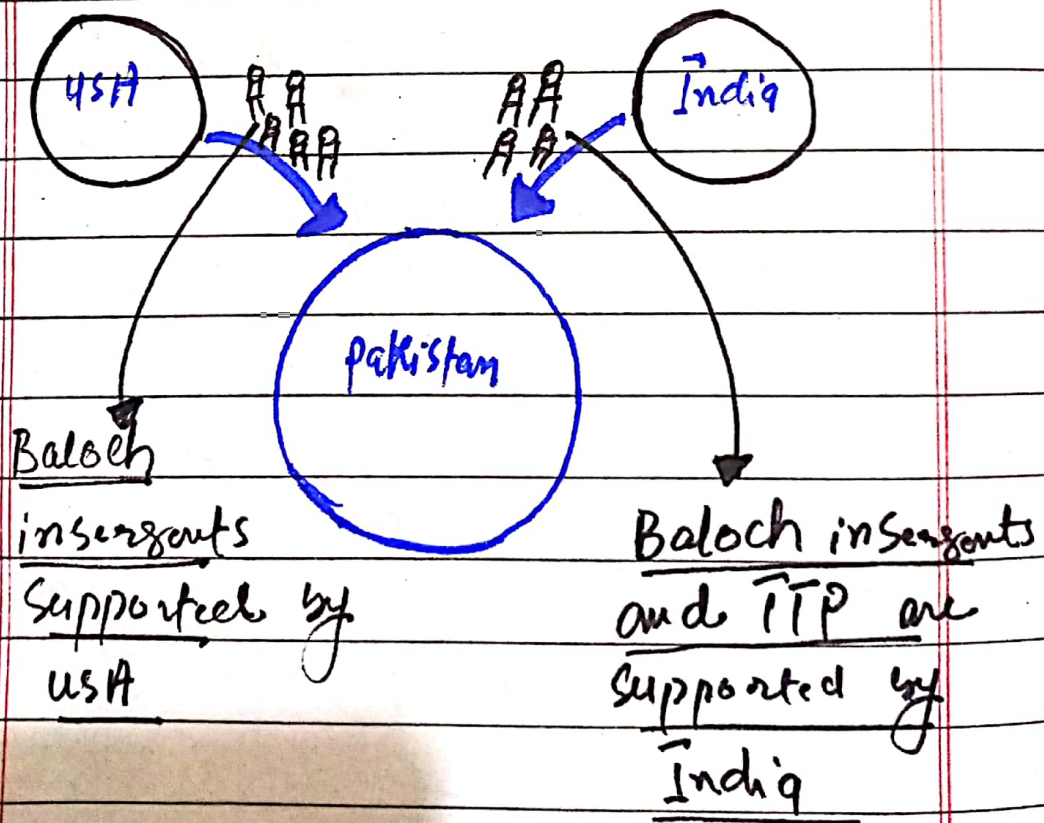 USA
India
Pakistan
Baloch
insergouts
supported by
USA
Baloch insergouts
and TTP are
supported by
India